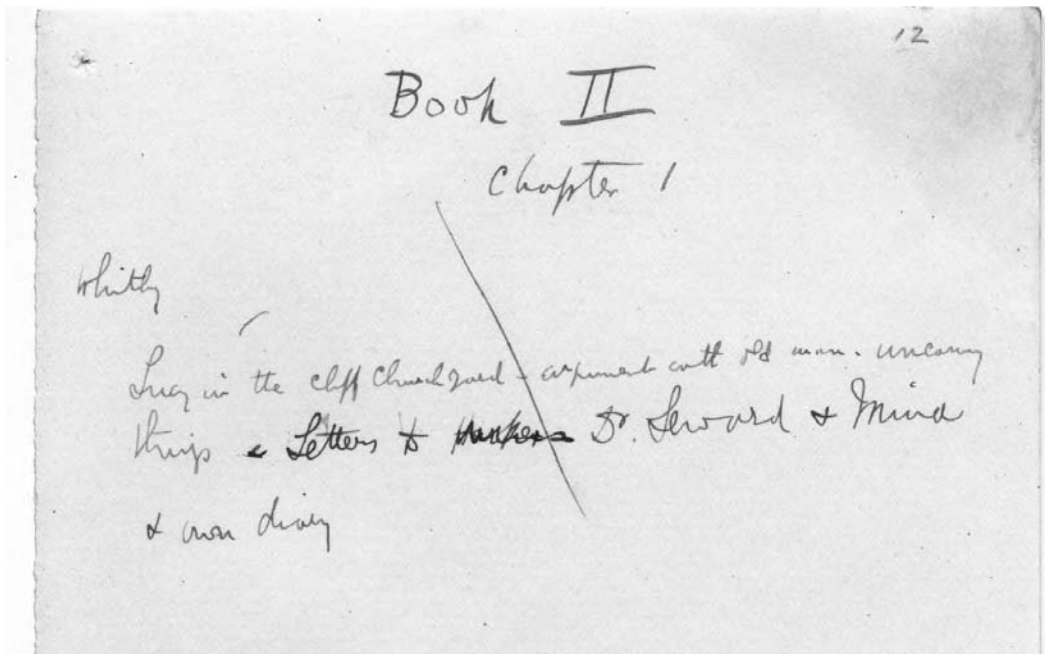 12
Book II
Chapter 1
Whitby
Lucy in the cliff churchyard - argument with old man. uncanny
things - Letters to Dr. Seward & Mina
& own diary